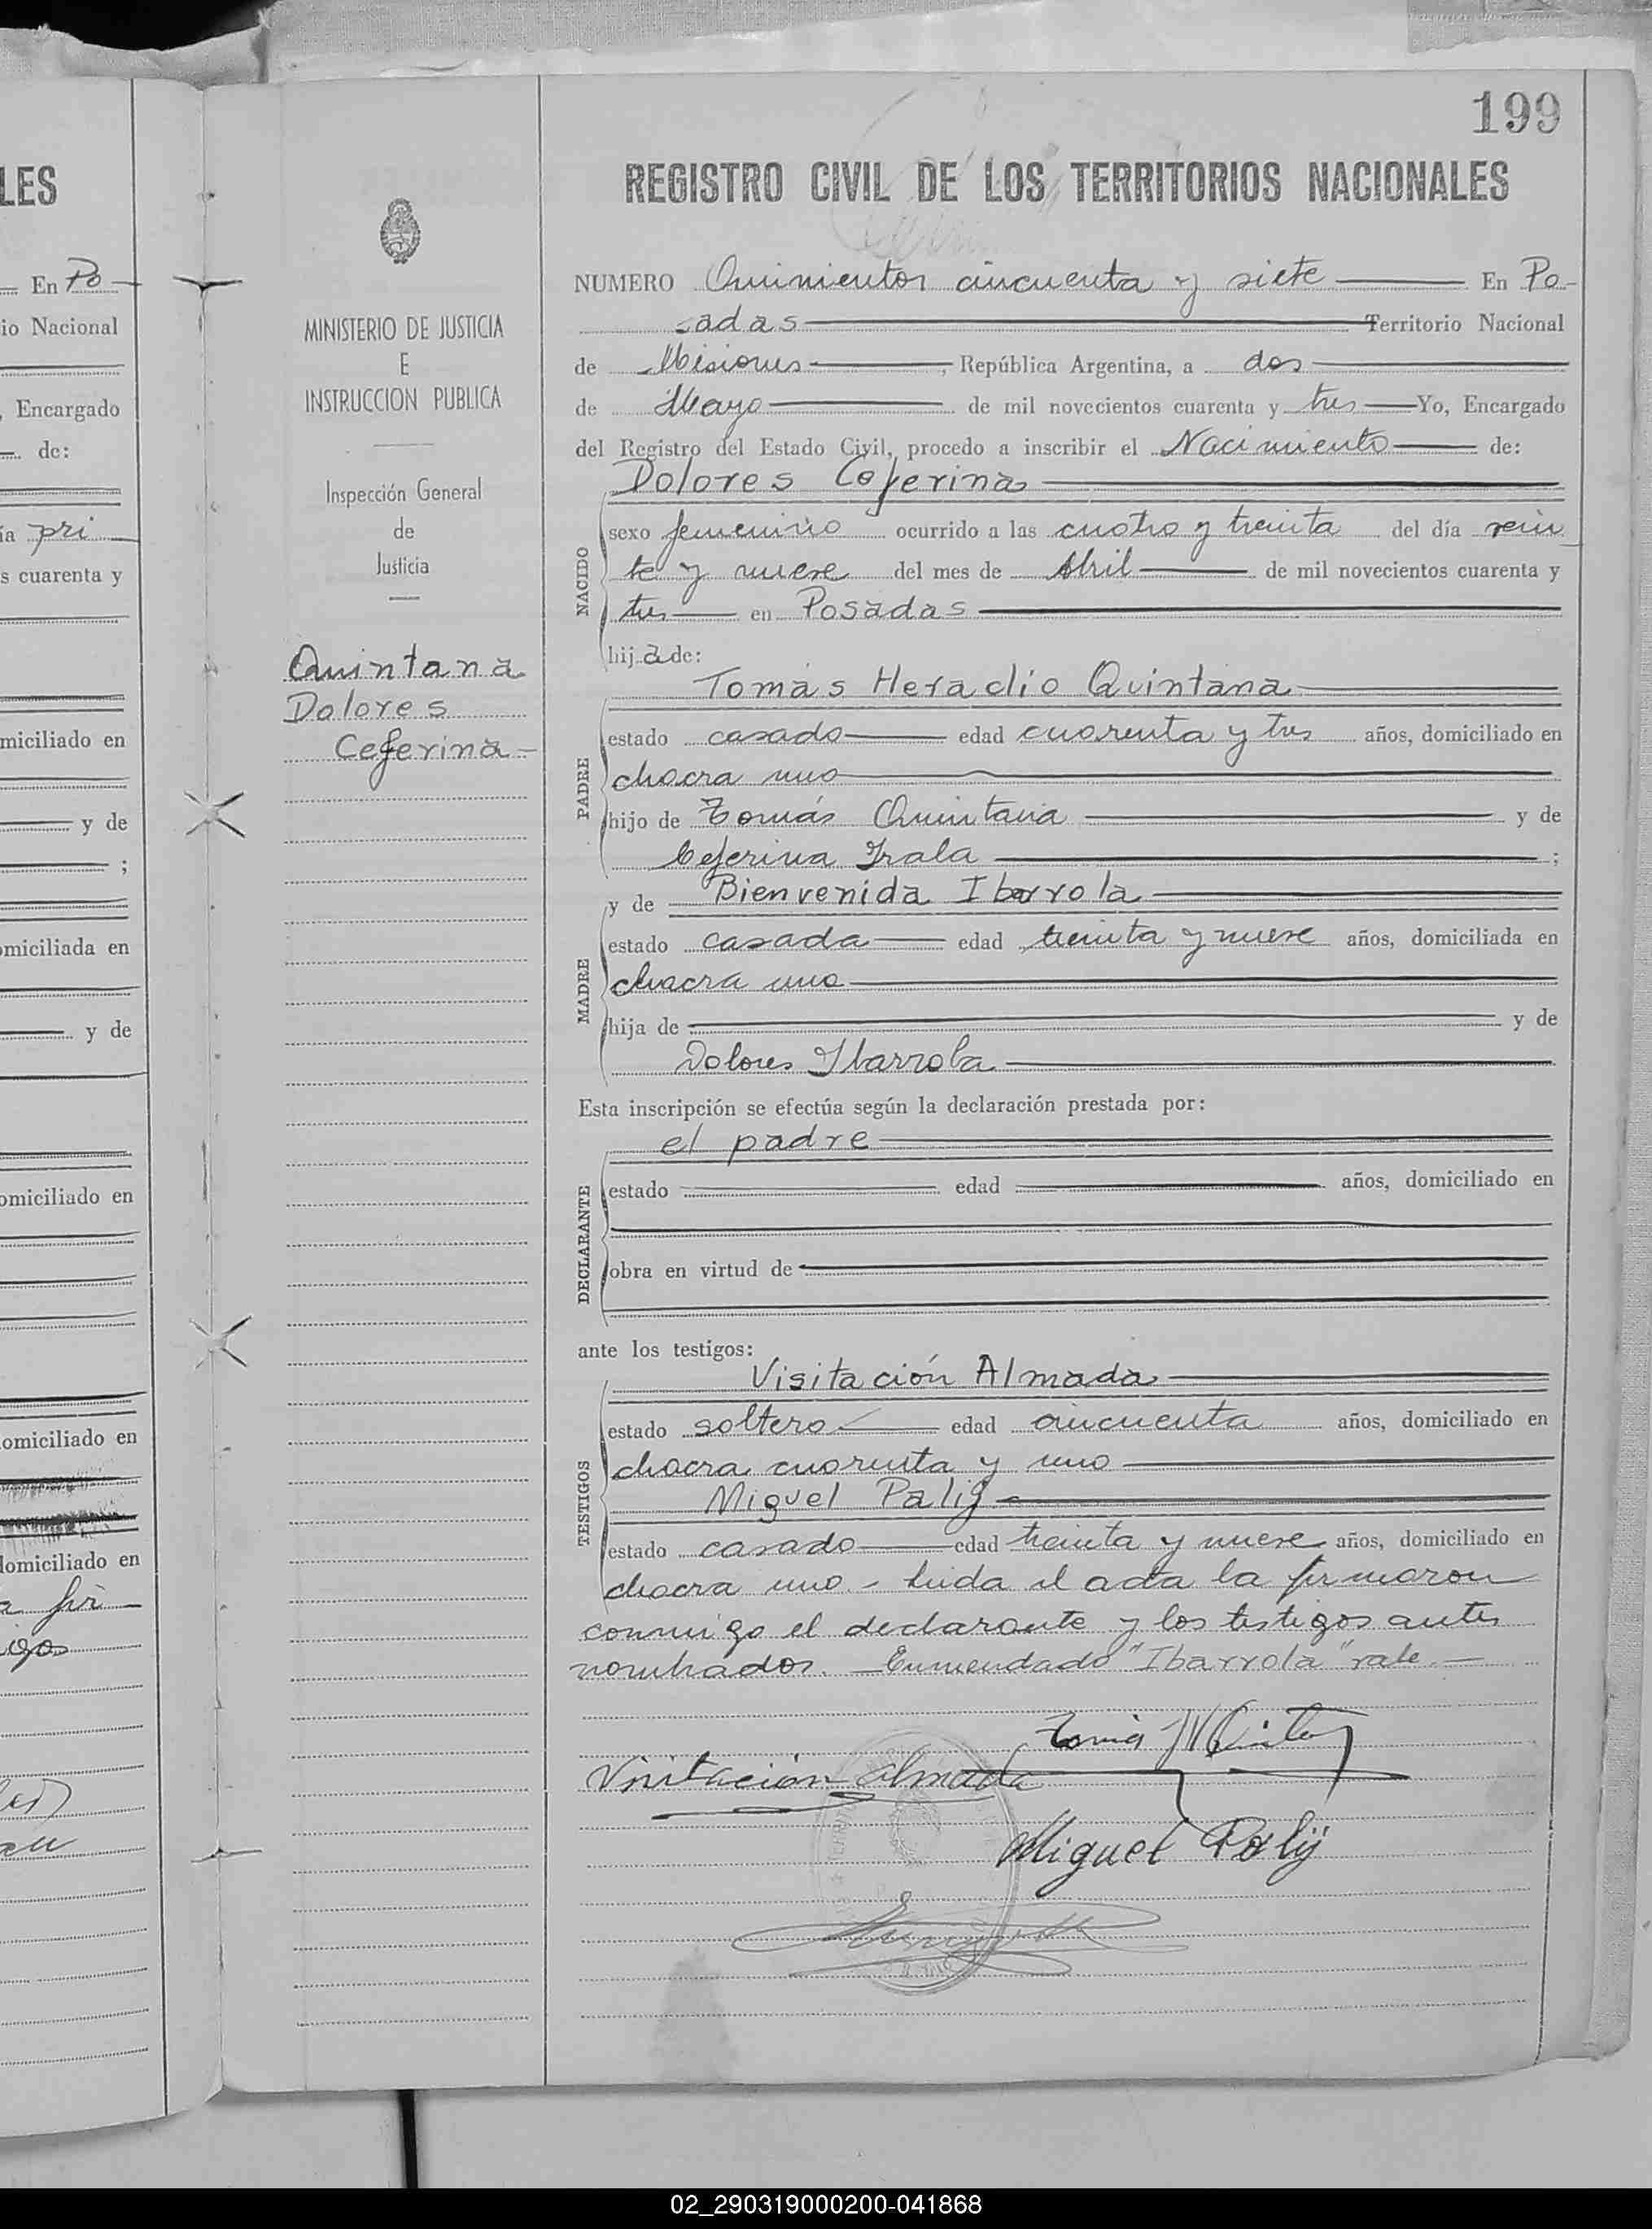 LES
En Po
io Nacional
, Encargado
de:
ía pri
s cuarenta y
miciliado en
y de
;
omiciliada en
y de
omiciliado en
omiciliado en
domiciliado en
a fir
igos
MINISTERIO DE JUSTICIA
E
INSTRUCCION PUBLICA
Inspección General
de
Justicia
Quintana
Dolores
Ceferina
199
REGISTRO CIVIL DE LOS TERRITORIOS NACIONALES
NUMERO Quinientos cincuenta y siete En Po-
sadas Territorio Nacional
de Misiones, República Argentina, a dos
de Mayo de mil novecientos cuarenta y tres Yo, Encargado
del Registro del Estado Civil, procedo a inscribir el Nacimiento de:
Dolores Ceferina
NACIDO
sexo femenino ocurrido a las cuatro y treinta del día vein
te y nueve del mes de Abril de mil novecientos cuarenta y
tres en Posadas
hija de:
Tomás Heraclio Quintana
PADRE
estado casado edad cuarenta y tres años, domiciliado en
chacra uno
hijo de Tomás Quintana y de
Ceferina Irala ;
y de Bienvenida Ibarrola
MADRE
estado casada edad treinta y nueve años, domiciliada en
chacra uno
hija de y de
Dolores Ibarrola
Esta inscripción se efectúa según la declaración prestada por:
el padre
DECLARANTE
estado edad años, domiciliado en
obra en virtud de
ante los testigos:
Visitación Almada
TESTIGOS
estado soltero edad cincuenta años, domiciliado en
chacra cuarenta y uno
Miguel Palij
estado casado edad treinta y nueve años, domiciliado en
chacra uno - leida el acta la firmaron
conmigo el declarante y los testigos antes
nombrados. - Enmendado "Ibarrola" vale. -
Visitación Almada
Miguel Palij
02_290319000200-041868